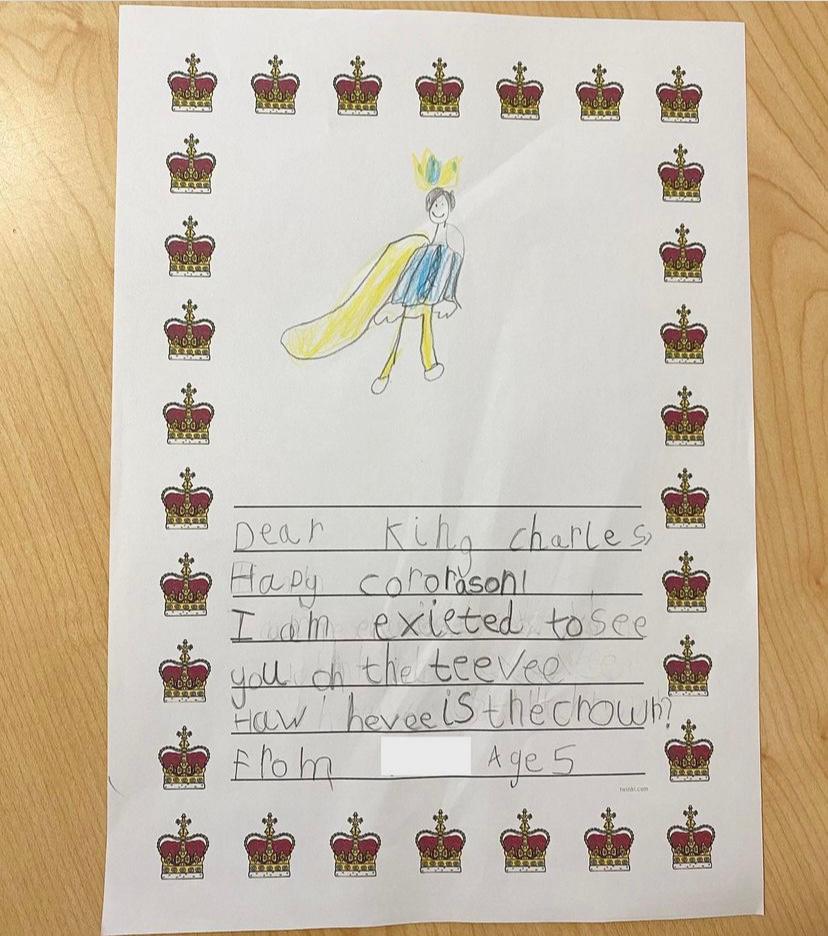 Dear King charles,
Hapy cororason!
I am exieted to see
you on the teevee
Haw hevee is the crown?
From Age 5
twinkl.com